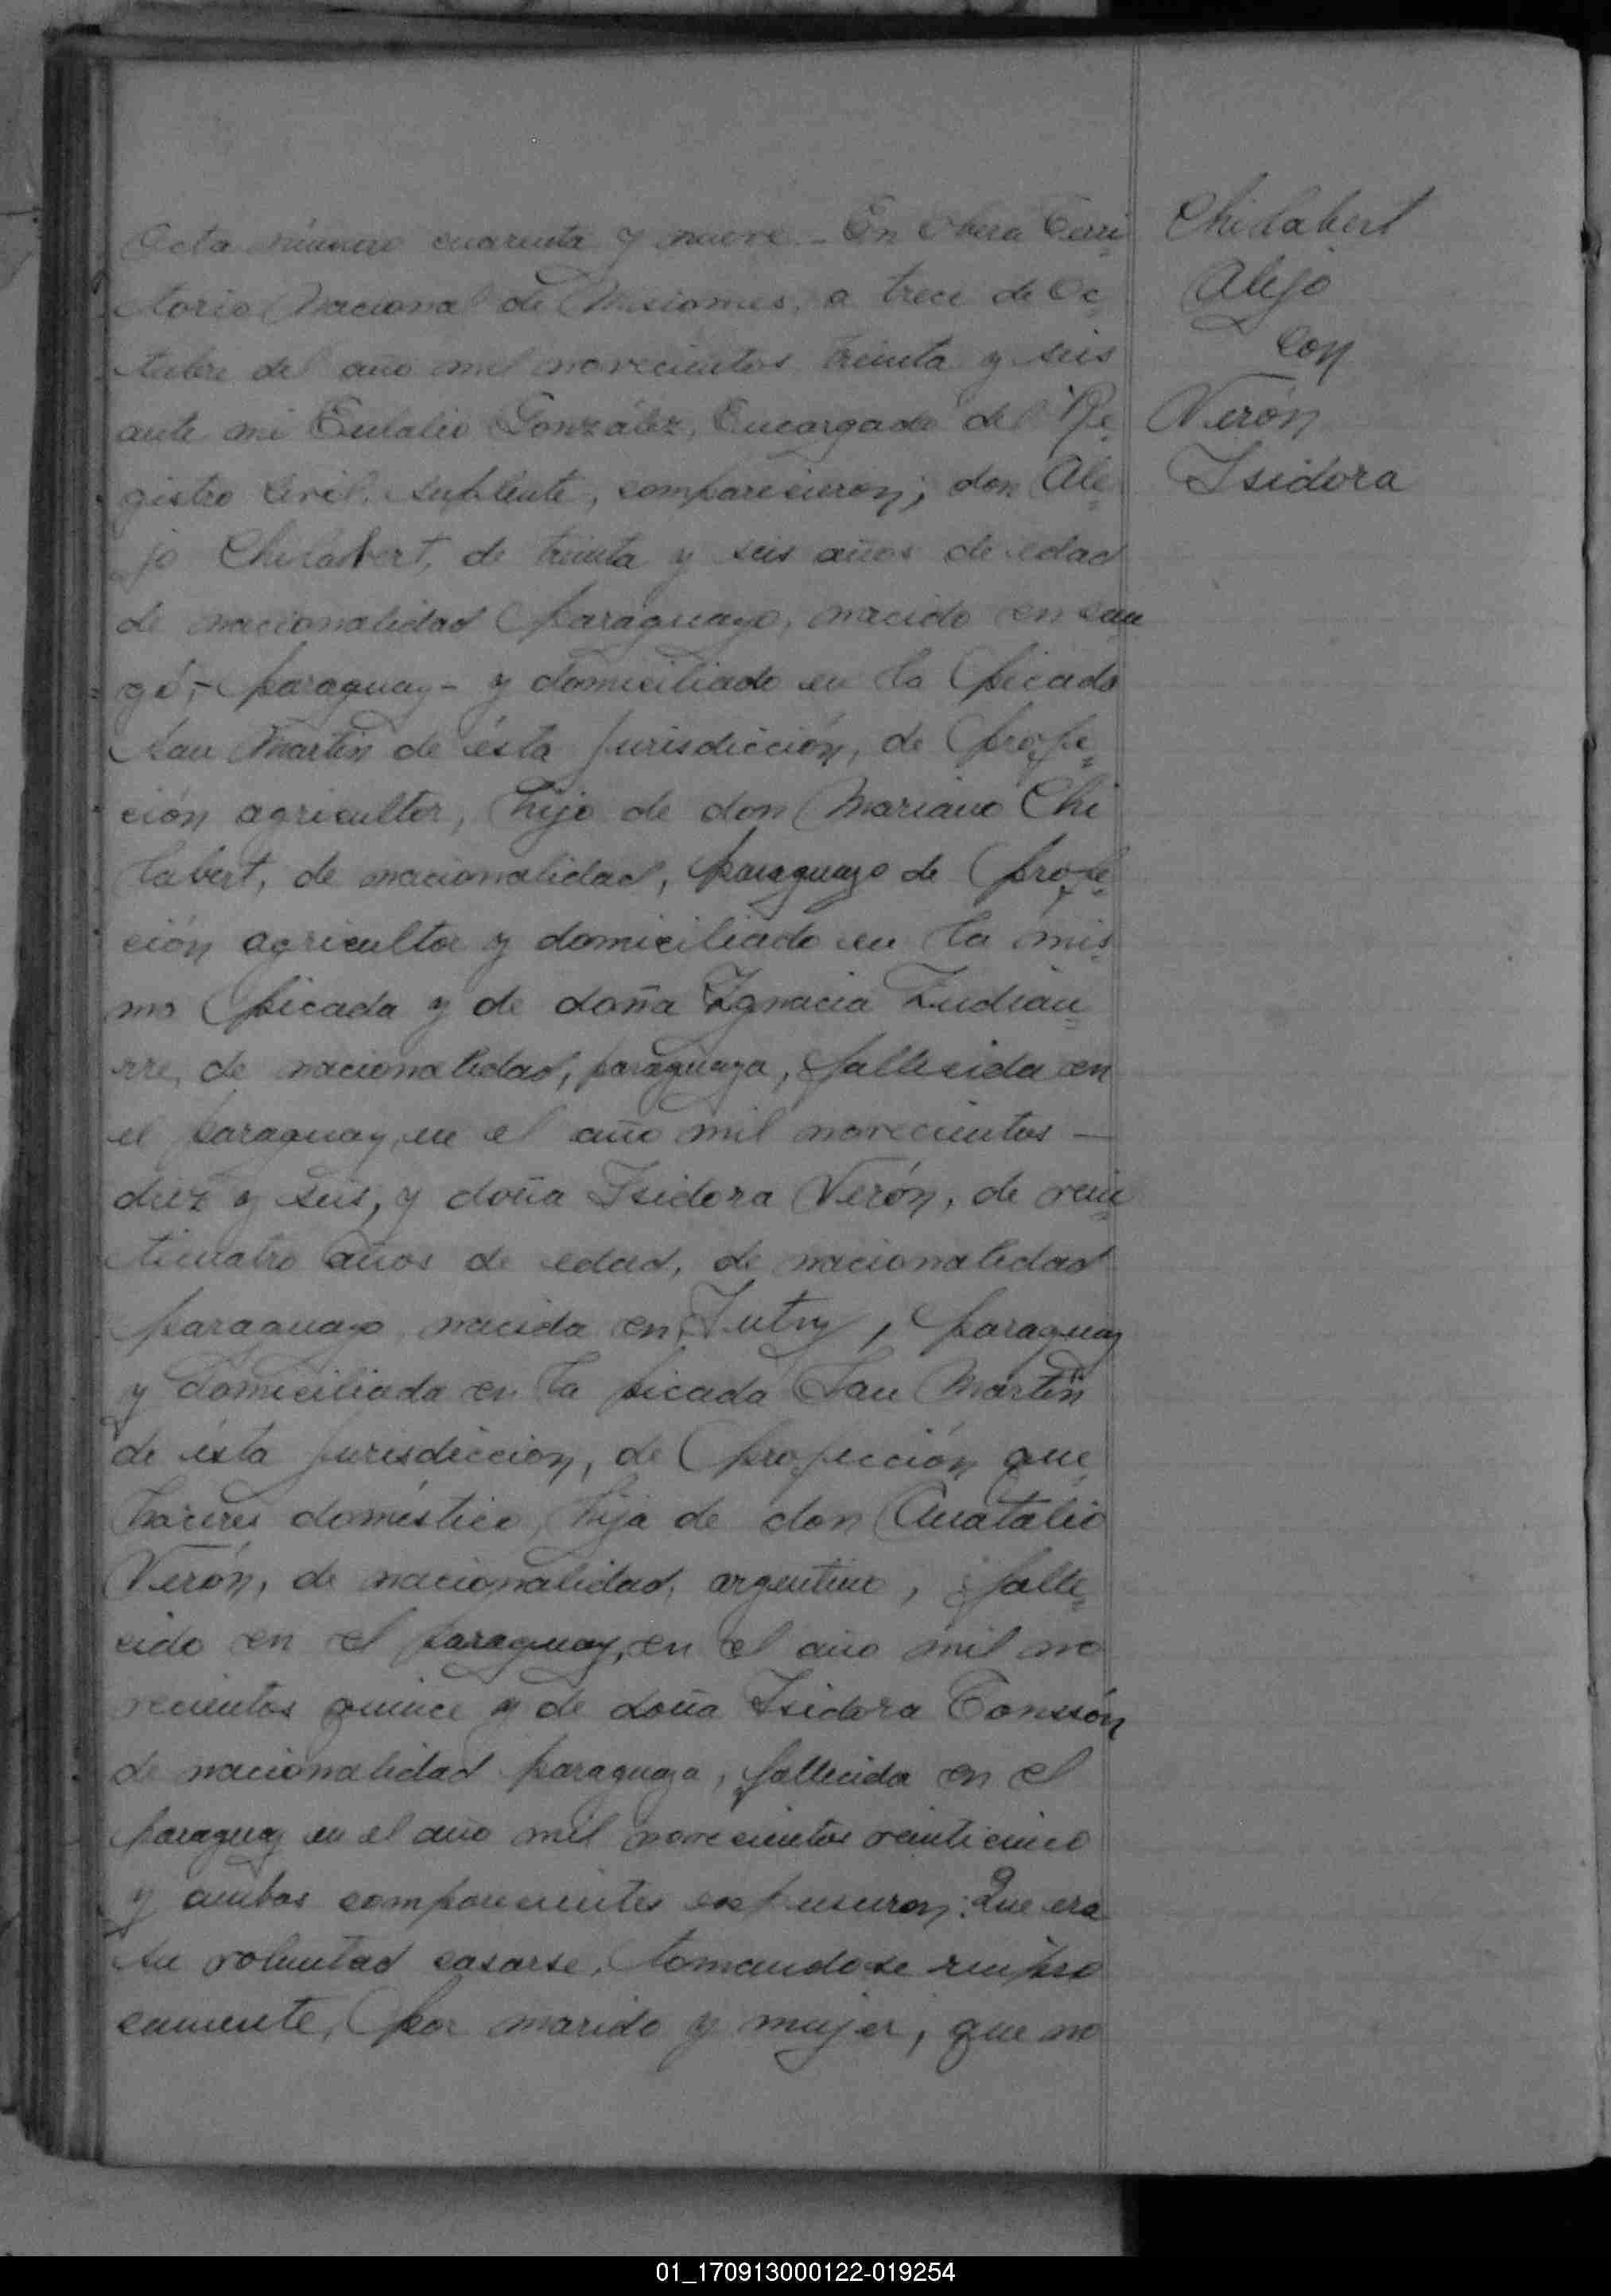 Acta número cuarenta y nueve.- En Obera Terri-
torio Nacional de Misiones, a trece de Oc-
tubre del año mil novecientos treinta y seis
ante mi Eulalio González, Encargado del Re-
gistro Civil, suplente, comparecieron; don Ale-
jo Chilabert, de treinta y seis años de edad
de nacionalidad paraguayo, nacido en
- paraguay - y domiciliado en la picada
San Martín de ésta jurisdicción, de profe-
ción agricultor, hijo de don Mariano Chi
labert, de nacionalidad, paraguayo de profe-
ción agricultor y domiciliado en la mis-
ma picada y de doña Ignacia
de nacionalidad, paraguaya, fallecida en
el paraguay, en el año mil novecientos —
diez y seis, y doña Isidora Verón, de vein-
ticuatro años de edad, de nacionalidad
paraguayo, nacida en Jutuy, paraguay
y domiciliada en la picada San Martín
de ésta jurisdiccion, de profección que
haceres doméstico, hija de don Anatalio
Verón, de nacionalidad, argentino, falle-
cido en el paraguay, en el año mil no
vecientos quince y de doña Isidora
de nacionalidad paraguaya, fallecida en el
paraguay en el año mil novecientos veinticinco
y ambos expusieron: Que era
su voluntad casarse, tomandose recipro
camente, por marido y mujer, que no
Chidabert
Alejo
con
Verón
Isidora
01_170913000122-019254